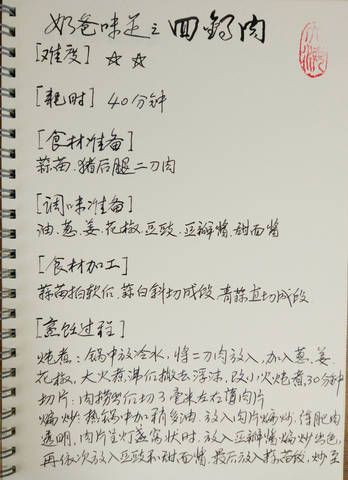 奶爸味道之回锅肉
[难度] ☆ ☆
[耗时] 40分钟
[食材准备]
蒜苗、猪后腿二刀肉
[调味准备]
油、葱、姜、花椒、豆豉、豆瓣酱、甜面酱
[食材加工]
蒜苗拍软后,蒜白斜切成段,青蒜直切成段
[烹饪过程]
炖煮:锅中放冷水,将二刀肉放入,加入葱、姜
花椒,大火煮沸后撇去浮沫,改小火炖煮30分钟
切片:肉捞出后切3毫米左右薄肉片
煸炒:热锅中加稍多油,放入肉片煸炒,待肥肉
透明,肉片呈灯盏窝状时,放入豆瓣酱煸炒出色,
再依次放入豆豉和甜面酱,最后放入蒜苗段,炒至